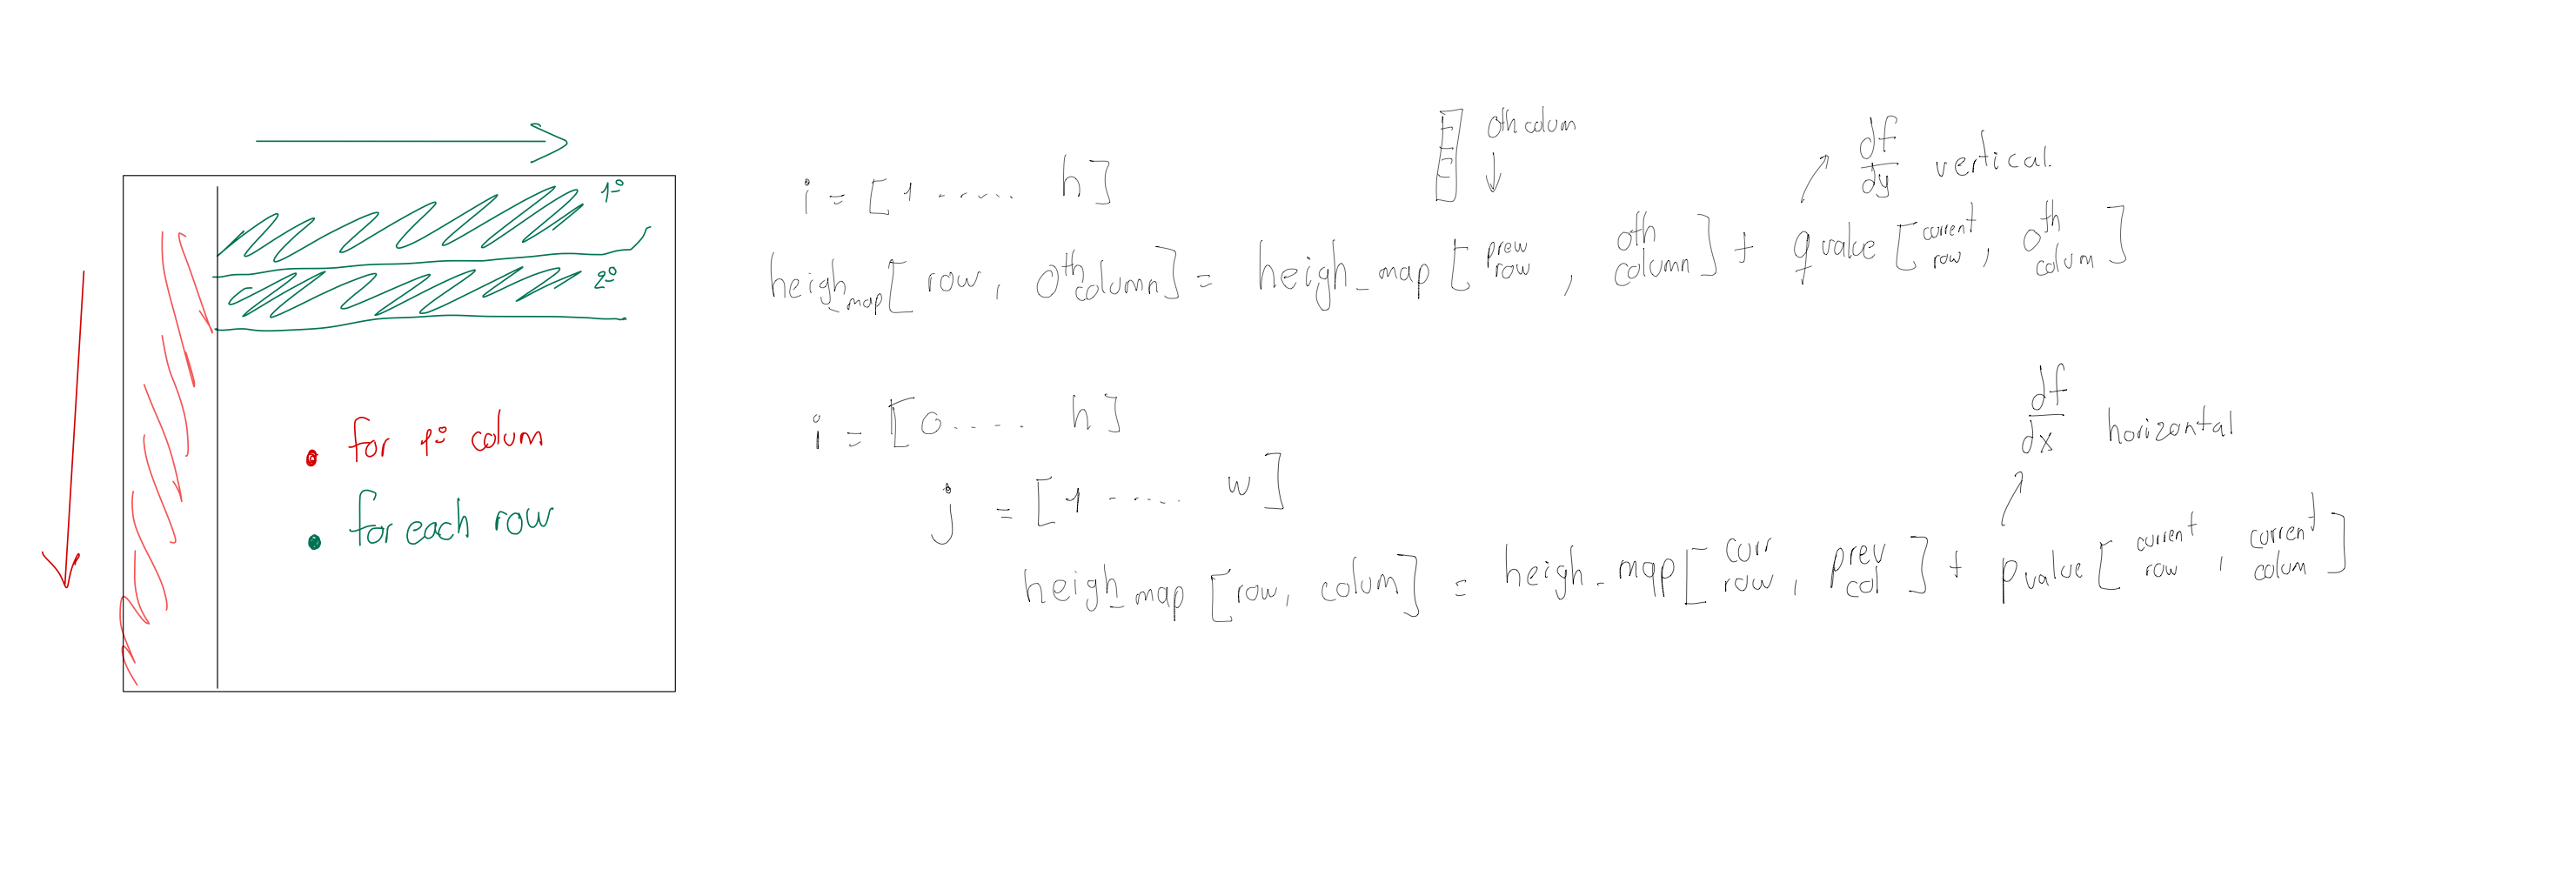 1º
2º
• for 1º colum
• for each row
0th colum
i = [1 ...... h]
df/dy vertical.
heigh_map[row, 0th column] = heigh_map[prew row, 0th column] + q value[current row, 0th colum]
i = [0.... h]
df/dx horizontal
j = [1 ...... w]
heigh_map[row, colum] = heigh_map[curr row, prev col] + p value[current row, current colum]